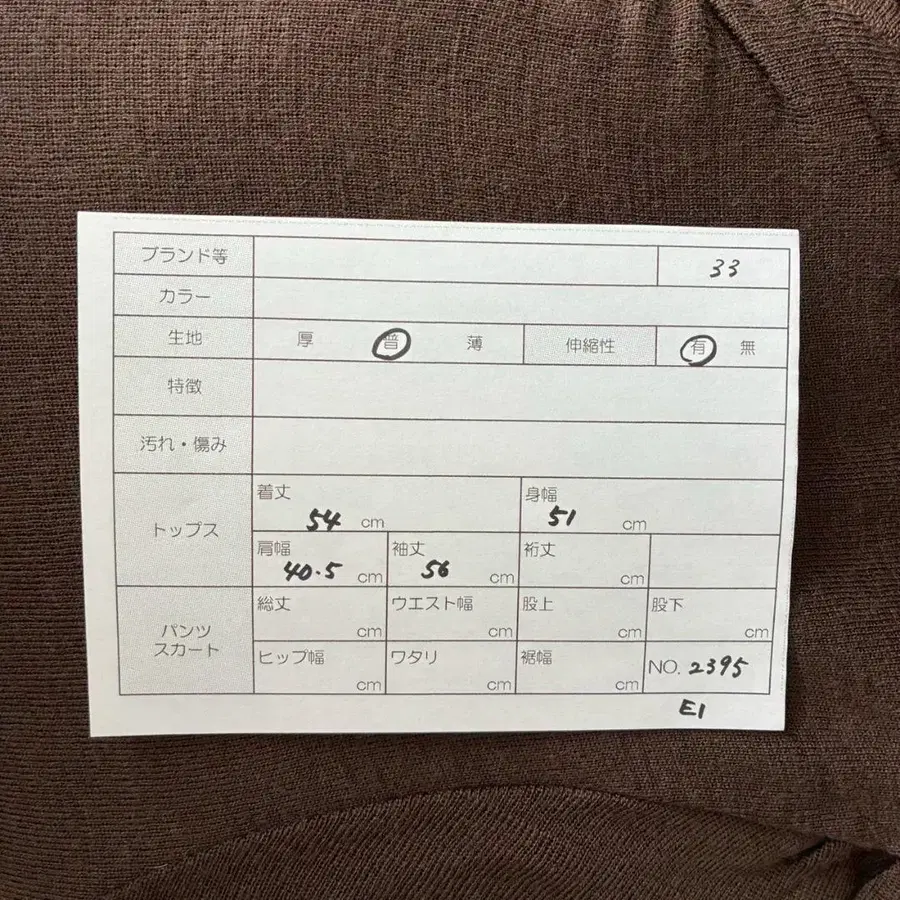 ブランド等 33
カラー
生地 厚 普 薄 伸縮性 有 無
特徴
汚れ・傷み
トップス
着丈 54 cm 身幅 51 cm
肩幅 40.5 cm 袖丈 56 cm 裄丈 cm
パンツ
スカート
総丈 cm ウエスト幅 cm 股上 cm 股下 cm
ヒップ幅 cm ワタリ cm 裾幅 cm NO. 2395
E1